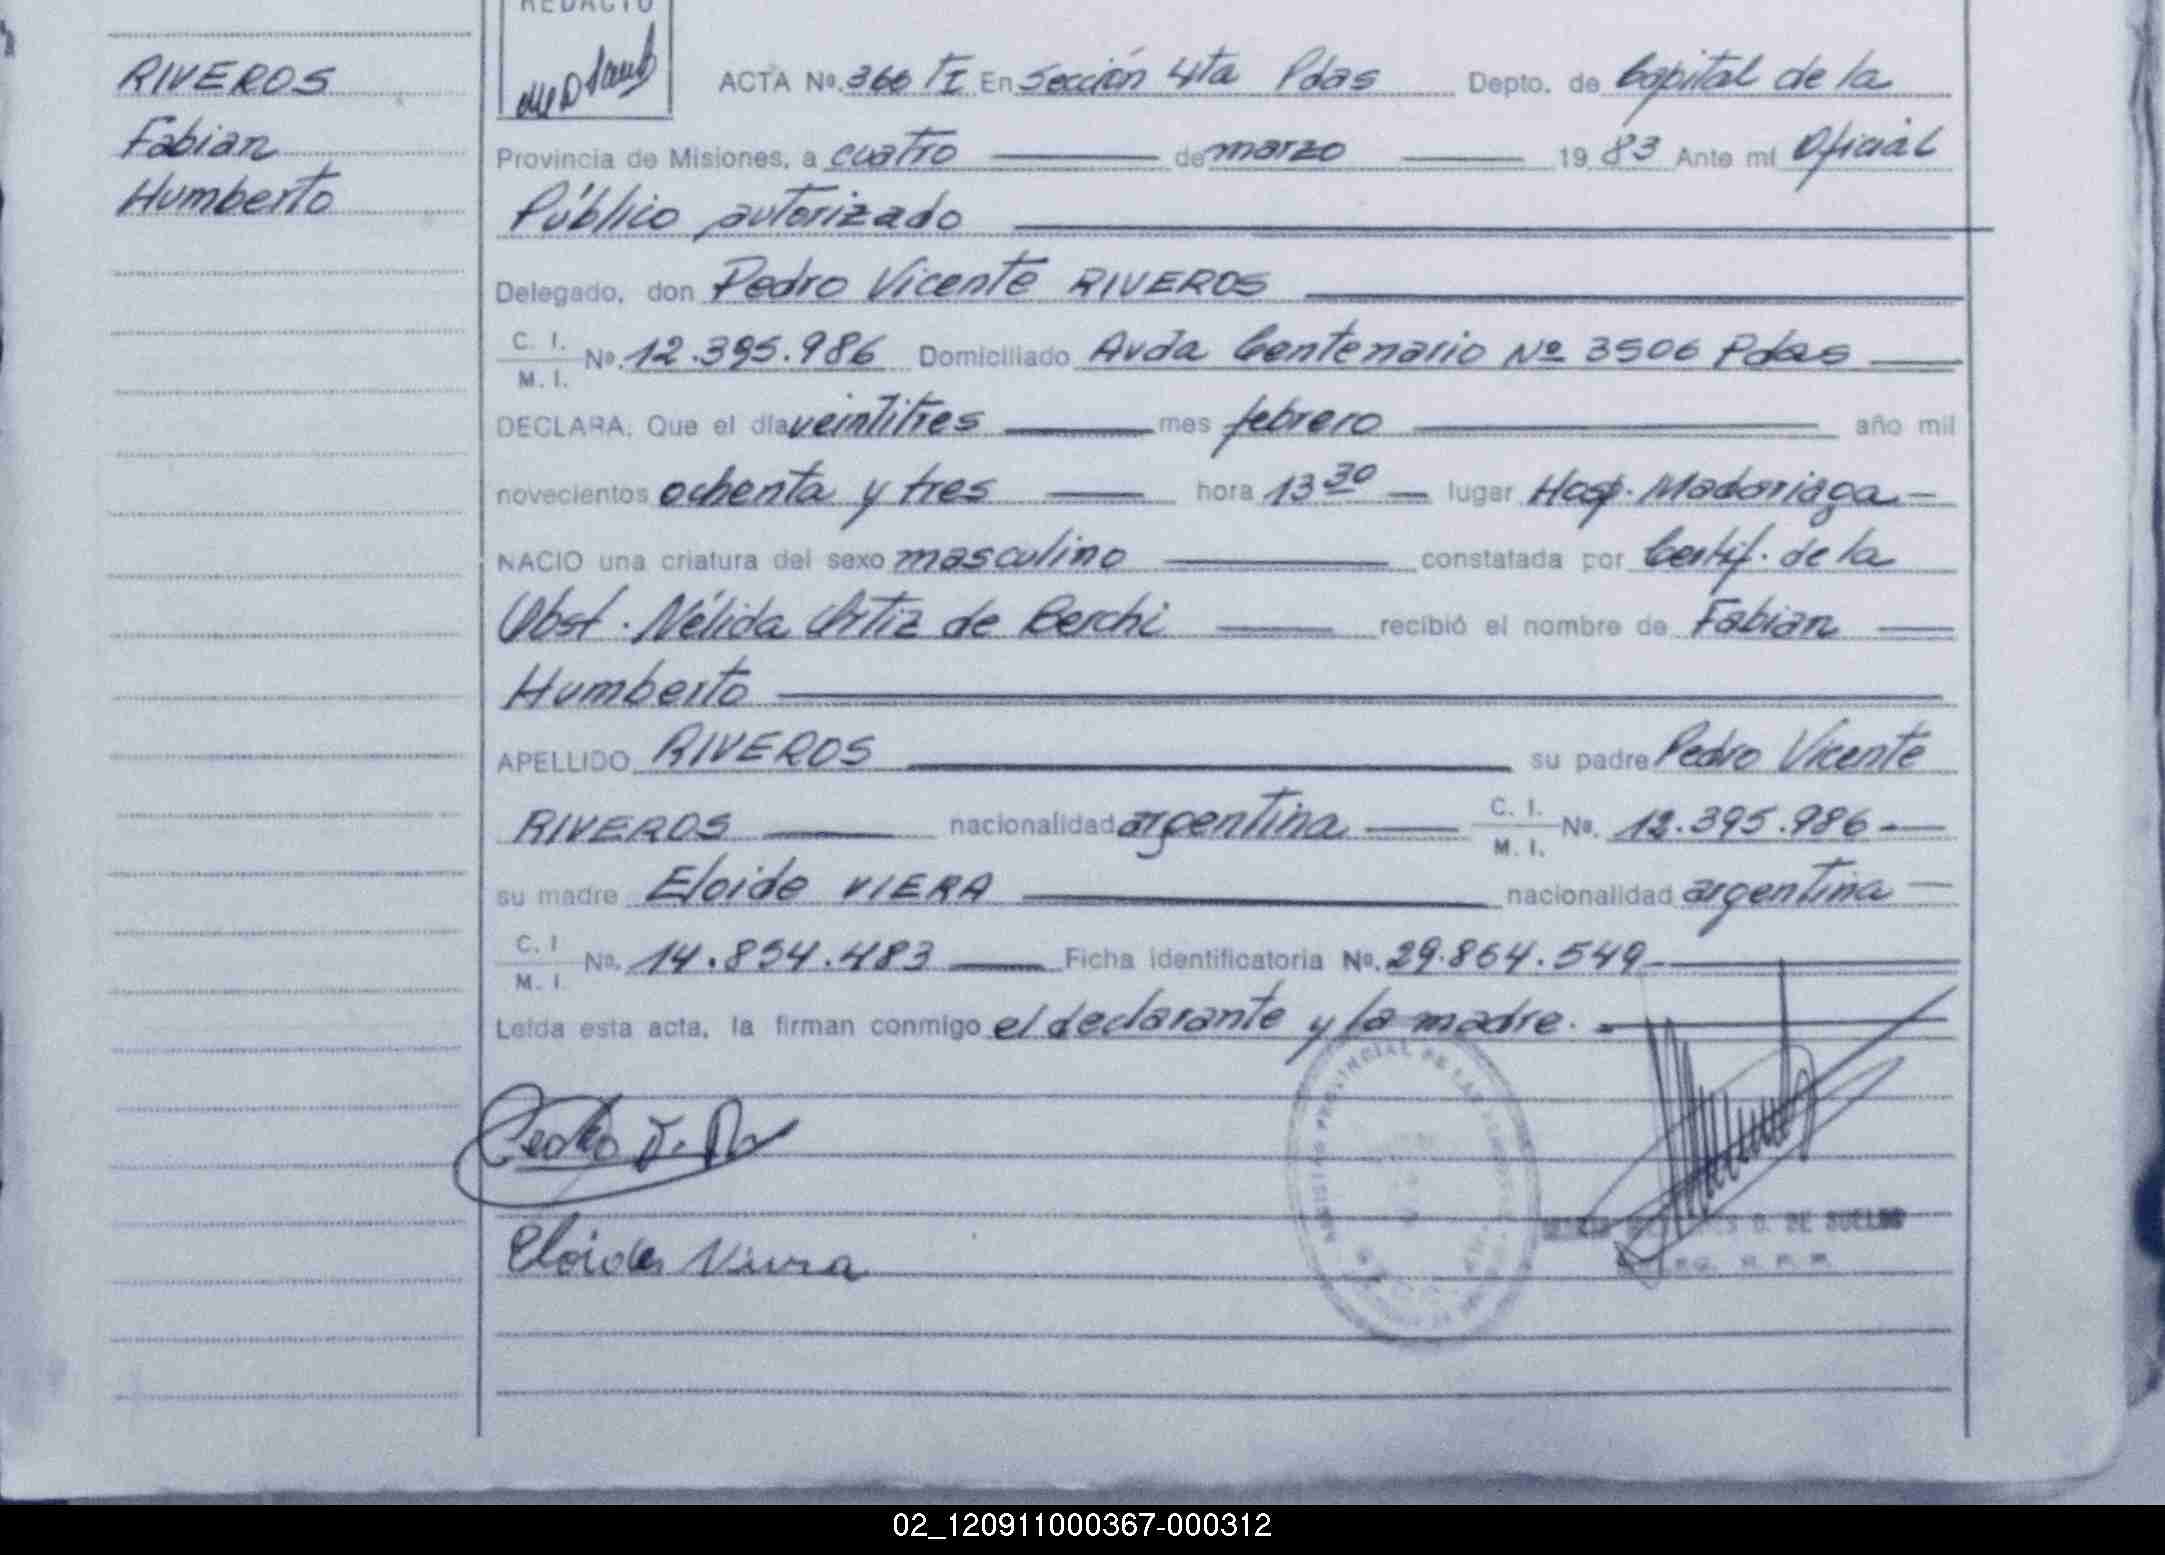 REDACTO
RIVEROS
Fabian
Humberto
ACTA No. 366 TI En Sección 4ta Pdas Depto. de Capital de la
Provincia de Misiones, a cuatro de marzo 19 83 Ante mí Oficial
Público autorizado
Delegado, don Pedro Vicente RIVEROS
C. I.
M. I. No. 12.395.986 Domiciliado Avda Centenario Nº 3506 Pdas
DECLARA. Que el día veintitres mes febrero año mil
novecientos ochenta y tres hora 13 30 lugar Hosp. Madariaga
NACIO una criatura del sexo masculino constatada por Certif. de la
Obst. Nélida Ortiz de Berchi recibió el nombre de Fabian
Humberto
APELLIDO RIVEROS su padre Pedro Vicente
RIVEROS nacionalidad argentina C. I. M. I. No. 12.395.986
su madre Eloide VIERA nacionalidad argentina
C. I. M. I. No. 14.834.483 Ficha identificatoria No. 29.864.549
Leída esta acta, la firman conmigo el declarante y la madre.
Pedro
Eloide Viera
DE SUELDO
02_120911000367-000312